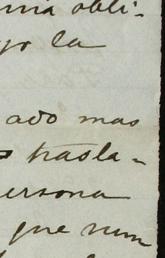 una obli-
yo la
ado mas
trasla-
ersona
que num